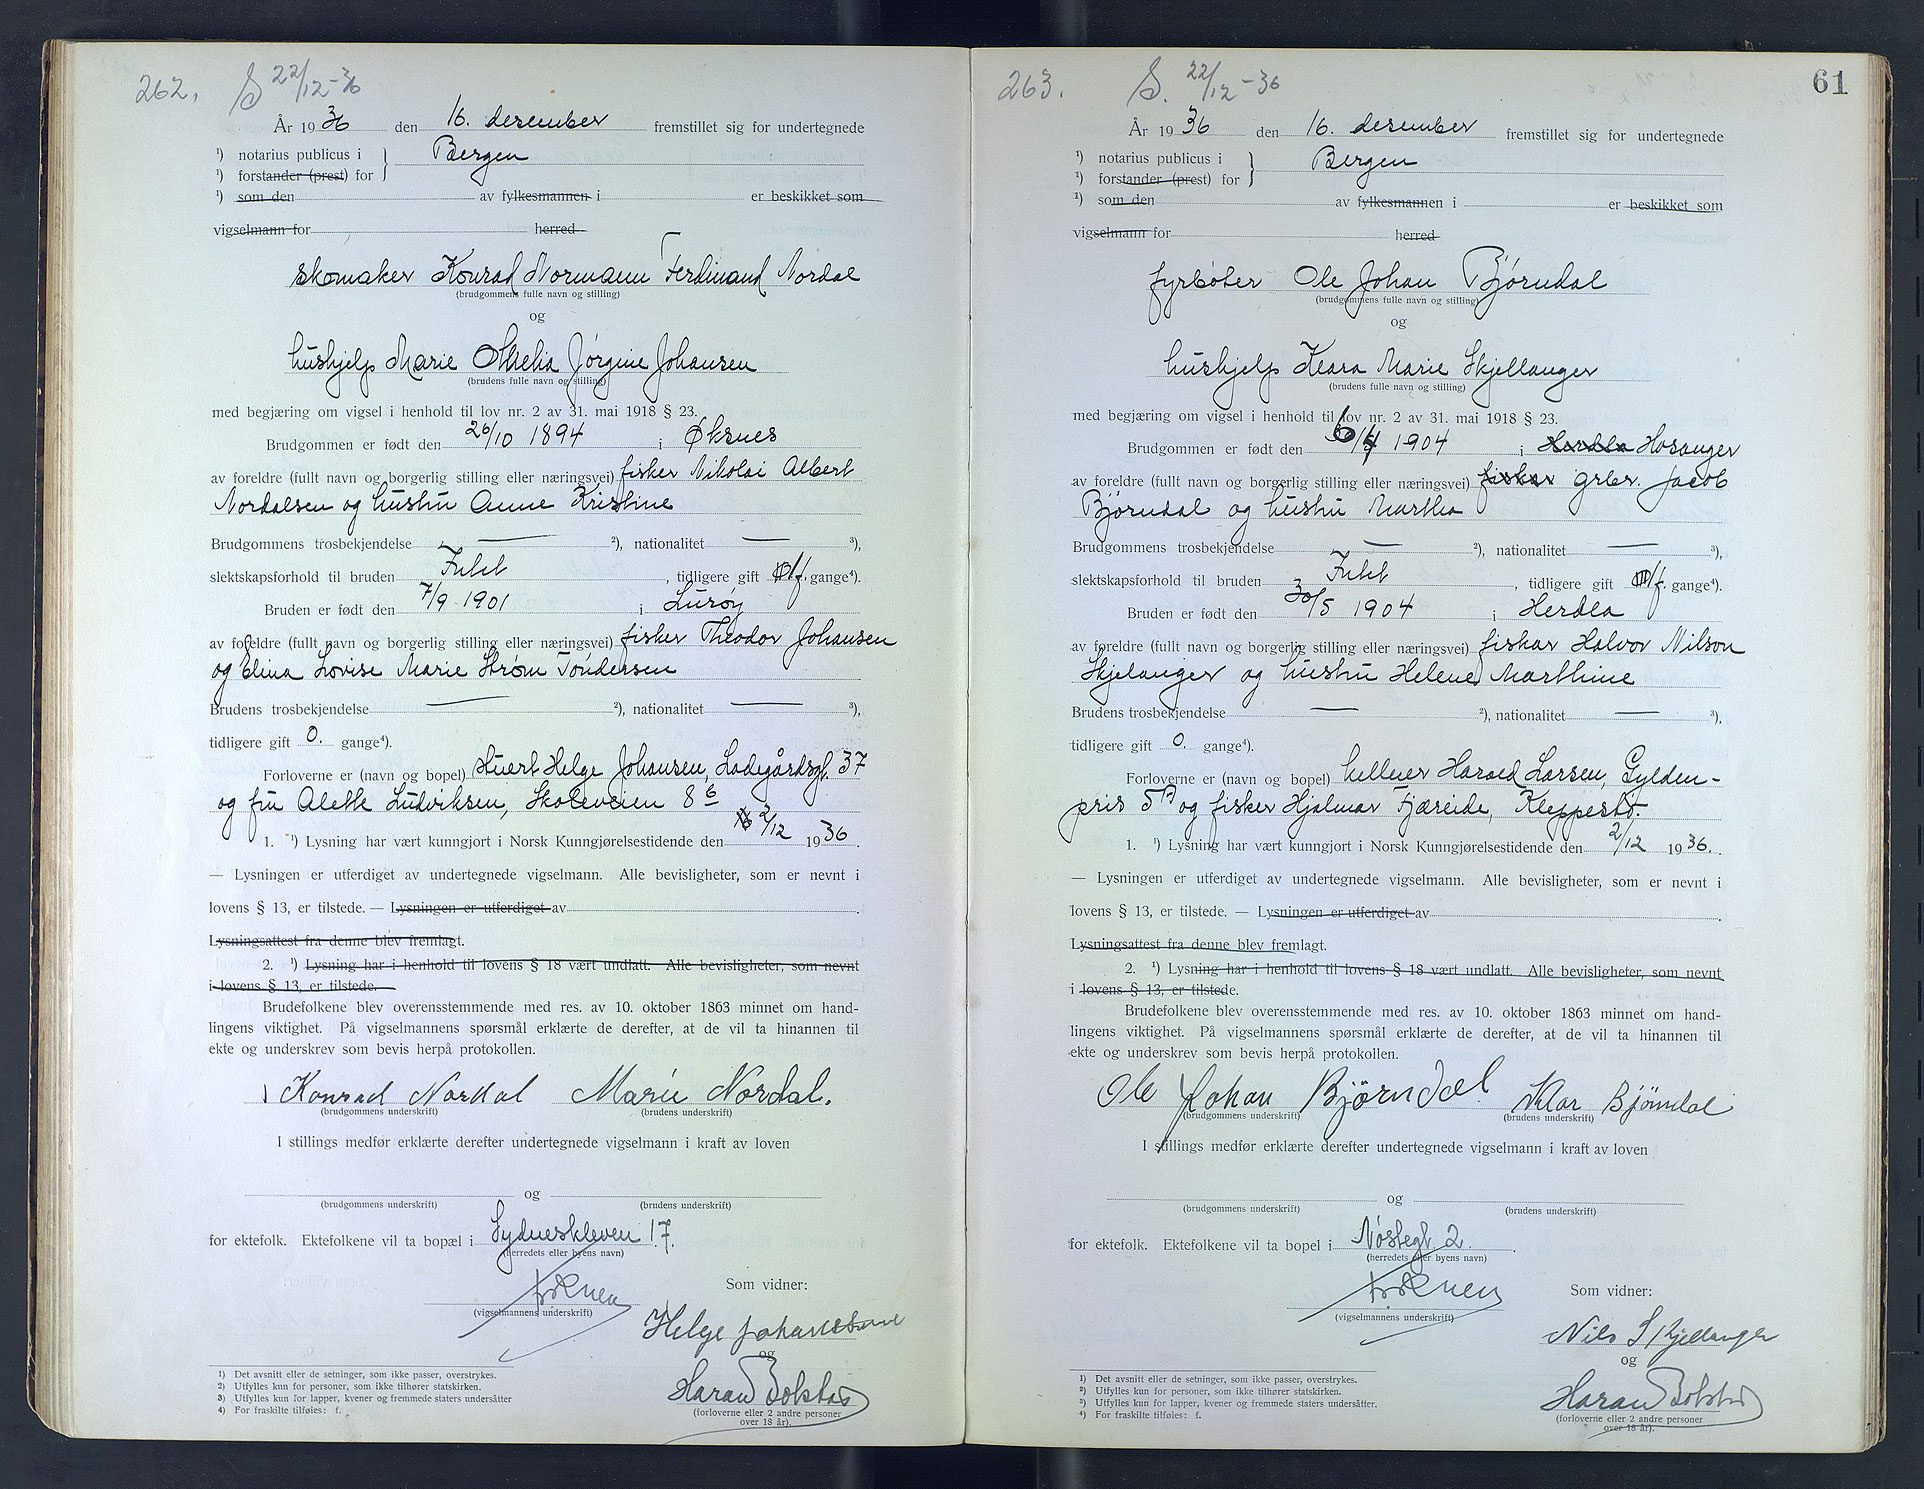 262. S 22/12-36
År 1936 den 16. desember fremstillet sig for undertegnede
¹) notarius publicus i } Bergen
¹) forstander (prest) for
¹) som den av fylkesmannen i er beskikket som
vigselmann for herred
skomaker Konrad Normann Ferdinand Nordal
(brudgommens fulle navn og stilling)
og
hushjelp Marie Othelia Jørgine Johansen
(brudens fulle navn og stilling)
med begjæring om vigsel i henhold til lov nr. 2 av 31. mai 1918 § 23.
Brudgommen er født den 26/10 1894 i Øksnes
av foreldre (fullt navn og borgerlig stilling eller næringsvei) fisker Nikolai Albert
Nordalsen og hustru Anne Kristine
Brudgommens trosbekjendelse — ²), nationalitet — ³),
slektskapsforhold til bruden Intet, tidligere gift 1 f. gange⁴).
Bruden er født den 7/9 1901 i Lurøy
av foreldre (fullt navn og borgerlig stilling eller næringsvei) fisker Theodor Johansen
og Elina Lovise Marie Strøm Tøndersen
Brudens trosbekjendelse — ²), nationalitet — ³),
tidligere gift 0. gange⁴).
Forloverne er (navn og bopel) stuert Helge Johansen, Ladegårdsgt. 37
og fru Alette Ludviksen, Skoleveien 8 b
1. ¹) Lysning har vært kunngjort i Norsk Kunngjørelsestidende den 2/12 1936.
— Lysningen er utferdiget av undertegnede vigselmann. Alle bevisligheter, som er nevnt i
lovens § 13, er tilstede. — Lysningen er utferdiget av
Lysningsattest fra denne blev fremlagt.
2. ¹) Lysning har i henhold til lovens § 18 vært undlatt. Alle bevisligheter, som nevnt
i lovens § 13, er tilstede.
Brudefolkene blev overensstemmende med res. av 10. oktober 1863 minnet om hand-
lingens viktighet. På vigselmannens spørsmål erklærte de derefter, at de vil ta hinannen til
ekte og underskrev som bevis herpå protokollen.
Konrad Nordal Marie Nordal.
(brudgommens underskrift) (brudens underskrift)
I stillings medfør erklærte derefter undertegnede vigselmann i kraft av loven
og
(brudgommens underskrift) (brudens underskrift)
for ektefolk. Ektefolkene vil ta bopæl i Sydneskleven 17.
(herredets eller byens navn)
Som vidner:
(vigselmannens underskrift)
Helge Johansen
og
Haran Bolstad
(forloverne eller 2 andre personer
over 18 år).
1) Det avsnitt eller de setninger, som ikke passer, overstrykes.
2) Utfylles kun for personer, som ikke tilhører statskirken.
3) Utfylles kun for lapper, kvener og fremmede staters undersåtter
4) For fraskilte tilføies: f.
263. S. 22/12-36 61
År 1936 den 16. desember fremstillet sig for undertegnede
¹) notarius publicus i } Bergen
¹) forstander (prest) for
¹) som den av fylkesmannen i er beskikket som
vigselmann for herred
fyrbøter Ole Johan Bjørndal
(brudgommens fulle navn og stilling)
og
hushjelp Klara Marie Skjellanger
(brudens fulle navn og stilling)
med begjæring om vigsel i henhold til lov nr. 2 av 31. mai 1918 § 23.
Brudgommen er født den 6/4 1904 i Herdla Hosanger
av foreldre (fullt navn og borgerlig stilling eller næringsvei) fisker grbr. Jacob
Bjørndal og hustru Martha
Brudgommens trosbekjendelse — ²), nationalitet — ³),
slektskapsforhold til bruden Intet, tidligere gift 1 f. gange⁴).
Bruden er født den 30/5 1904 i Herdla
av foreldre (fullt navn og borgerlig stilling eller næringsvei) fisker Halvor Nilson
Skjelanger og hustru Helene Marthine
Brudens trosbekjendelse — ²), nationalitet — ³),
tidligere gift 0. gange⁴).
Forloverne er (navn og bopel) kellner Harald Larsen, Gylden-
pris 5 A og fisker Hjalmar Fjæreide, Kleppestø.
1. ¹) Lysning har vært kunngjort i Norsk Kunngjørelsestidende den 2/12 1936.
— Lysningen er utferdiget av undertegnede vigselmann. Alle bevisligheter, som er nevnt i
lovens § 13, er tilstede. — Lysningen er utferdiget av
Lysningsattest fra denne blev fremlagt.
2. ¹) Lysning har i henhold til lovens § 18 vært undlatt. Alle bevisligheter, som nevnt
i lovens § 13, er tilstede.
Brudefolkene blev overensstemmende med res. av 10. oktober 1863 minnet om hand-
lingens viktighet. På vigselmannens spørsmål erklærte de derefter, at de vil ta hinannen til
ekte og underskrev som bevis herpå protokollen.
Ole Johan Bjørndal Klar Bjørndal
(brudgommens underskrift) (brudens underskrift)
I stillings medfør erklærte derefter undertegnede vigselmann i kraft av loven
og
(brudgommens underskrift) (brudens underskrift)
for ektefolk. Ektefolkene vil ta bopel i Nøstegt. 2.
(herredets eller byens navn)
Som vidner:
(vigselmannens underskrift)
Nils Skjellanger
og
Haran Bolstad
(forloverne eller 2 andre personer
over 18 år).
1) Det avsnitt eller de setninger, som ikke passer, overstrykes.
2) Utfylles kun for personer, som ikke tilhører statskirken.
3) Utfylles kun for lapper, kvener og fremmede staters undersåtter.
4) For fraskilte tilføies: f.